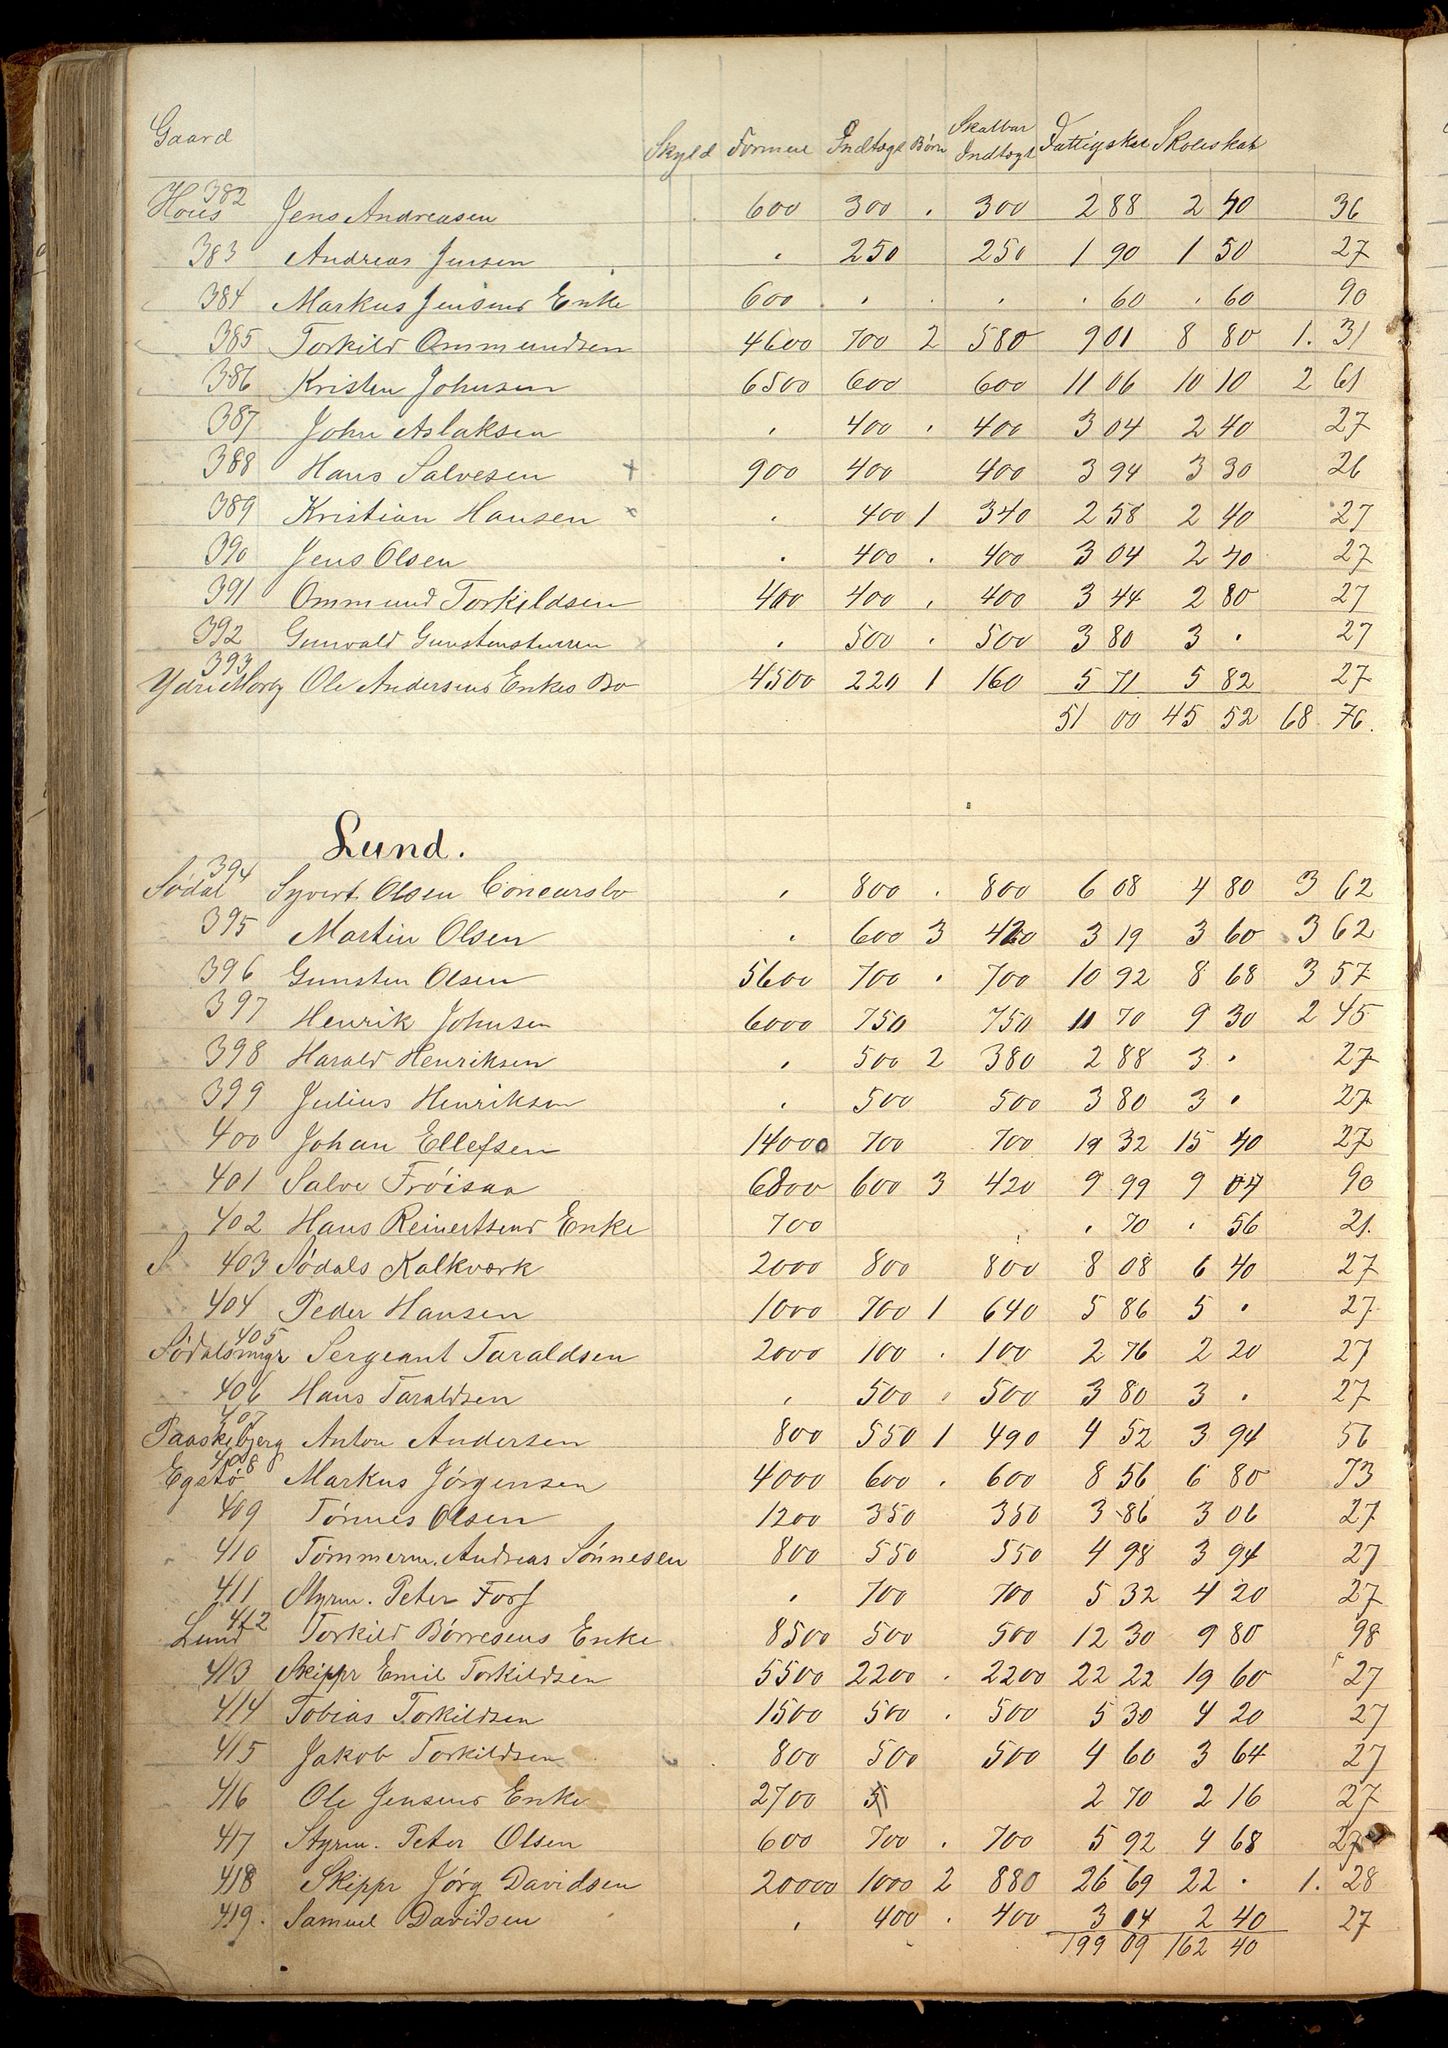 Gaard Skyld Formue Indtægt Børn Skatbar Indtægt Fattigskat Skoleskat
382 Hous Jens Andreasen 600 300 . 300 2 88 2 40 36
383 Andreas Jensen . 250 250 1 90 1 50 27
384 Markus Jensens Enke 600 . . . . 60 . 60 90
385 Torkild Ommundsen 4600 700 2 580 9 01 8 80 1. 31
386 Kristen Johnsen 6500 600 600 11 06 10 10 2 61
387 John Aslaksen . 400 . 400 3 04 2 40 27
388 Hans Salvesen + 900 400 400 3 94 3 30 26
389 Kristian Hansen x . 400 1 340 2 58 2 40 27
390 Jens Olsen . 400 . 400 3 04 2 40 27
391 Ommund Torkildsen 400 400 . 400 3 44 2 80 27
392 Gunvald . 500 . 500 3 80 3 . 27
393 Ole Andersens Enkes Bo 4500 220 1 160 5 71 5 82 27
51 00 45 52 68 76.
Lund.
394 Sødal Syvert Olsen Concursbo . 800 . 800 6 08 4 80 3 62
395 Martin Olsen . 600 3 420 3 19 3 60 3 62
396 Gunsten Olsen 5600 700 . 700 10 92 8 68 3 57
397 Henrik Johnsen 6000 750 750 11 70 9 30 2 45
398 Harald Henriksen . 500 2 380 2 88 3 . 27
399 Julius Henriksen . 500 500 3 80 3 . 27
400 Johan Ellefsen 14000 700 700 19 32 15 40 27
401 Salve Frøisaa 6800 600 3 420 9 99 9 04 90
402 Hans Reinertsens Enke 700 . 70 . 56 21.
S 403 Sødals Kalkværk 2000 800 800 8 08 6 40 27
404 Peder Hansen 1000 700 1 640 5 86 5 . 27
405 Sødalsmyr Sergeant Taraldsen 2000 100 . 100 2 76 2 20 27
406 Hans Taraldsen . 500 . 500 3 80 3 . 27
407 Paaskebjerg Anton Andersen 800 550 1 490 4 52 3 94 56
408 Egstø Markus Jørgensen 4000 600 . 600 8 56 6 80 73
409 Tønnes Olsen 1200 350 350 3 86 3 06 27
410 Tømmerm. Andreas Sønnesen 800 550 550 4 98 3 94 27
411 Styrm. Peter Forf . 700 700 5 32 4 20 27
412 Lund Torkild Børresens Enke 8500 500 500 12 30 9 80 98
413 Skippr Emil Torkildsen 5500 2200 . 2200 22 22 19 60 27
414 Tobias Torkildsen 1500 500 . 500 5 30 4 20 27
415 Jakob Torkildsen 800 500 500 4 60 3 64 27
416 Ole Jensens Enke 2700 2 70 2 16 27
417 Styrm. Peter Olsen 600 700 . 700 5 92 4 68 27
418 Skippr Jørg Davidsen 20000 1000 2 880 26 69 22 . 1. 28
419. Samuel Davidsen . 400 . 400 3 04 2 40 27
199 09 162 40